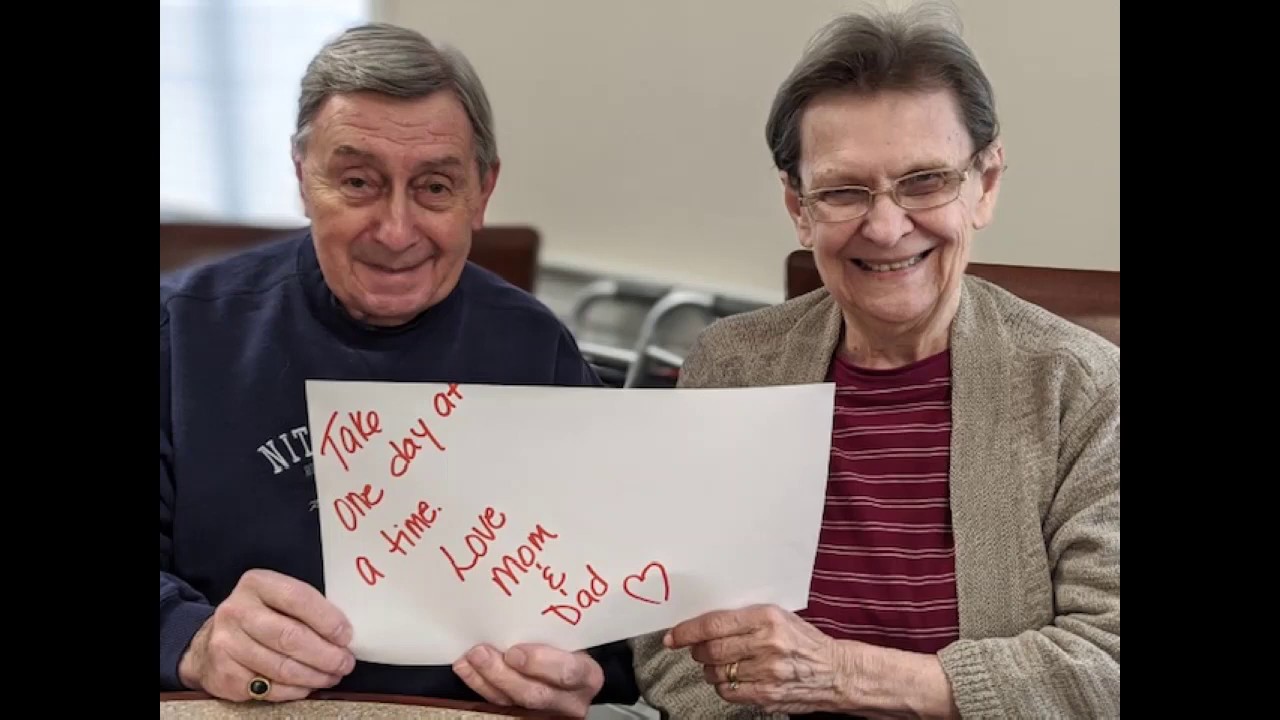 NIT
Take
one day at
a time.
Love
Mom
&
Dad ♡